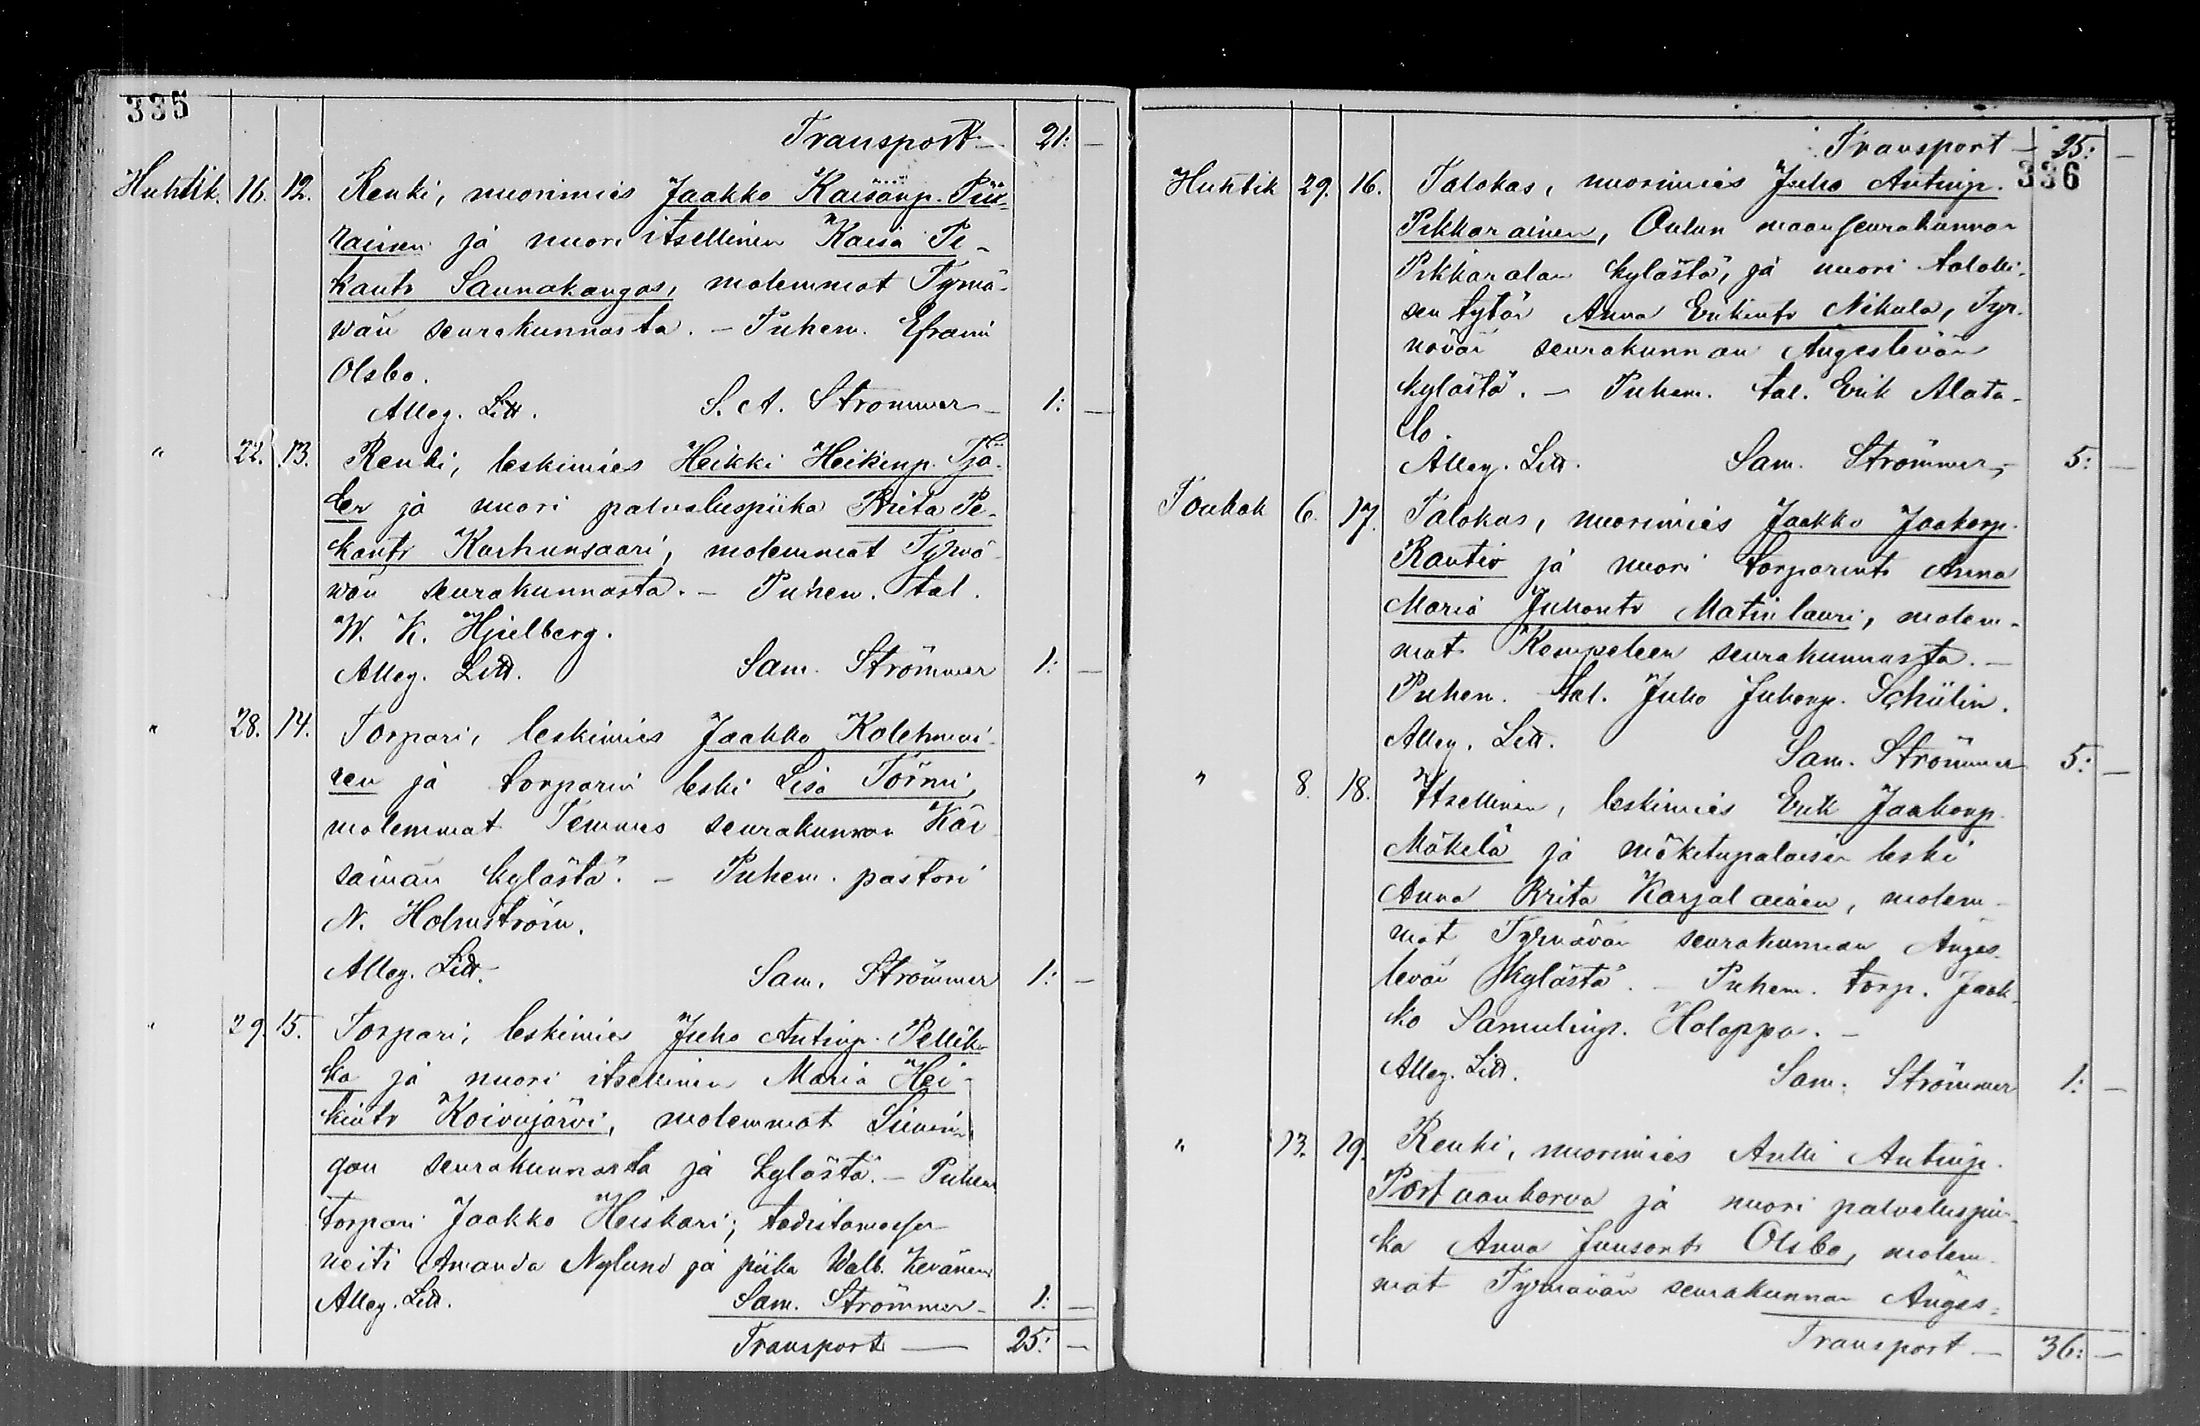 335
Transport — 21: —
Huhtik. 16. 12. Renki, nuorimies Jaakko Kaisanp. Pii-
rainen ja nuori itsellinen Kaisa Pe-
kantr Saunakangas, molemmat Tyrnä-
vän seurakunnasta. — Puhem. Efraim
Olsbo.
Alleg. Litt. S. A. Strömmer — 1: —
" 22. 13. Renki, leskimies Heikki Heikinp. Tjä-
ler ja nuori palveluspiika Brita Pe-
kantr Karhunsaari, molemmat Tyrnä-
vän seurakunnasta. — Puhem. tal.
W. K. Hjelberg.
Alleg. Litt. Sam. Strömmer 1: —
" 28. 14. Torpari, leskimies Jaakko Kolehmai-
nen ja torparin leski Lisa Törmi,
molemmat Temmes seurakunnan Kär-
sämän kylästä. — Puhem. pastori
N. Holmström.
Alleg. Litt. Sam. Strömmer 1: —
" 29. 15. Torpari, leskimies Juho Antinp. Pellik-
ka ja nuori itsellinen Maria Hei-
kintr Koivujärvi, molemmat Limin-
gan seurakunnasta ja kylästä. — Puhem
torpari Jaakko Heiskari; todistamassa
neiti Amanda Nylund ja piika Walb. Keränen
Alleg. Litt. Sam. Strömmer — 1: —
Transport — 25: —
Transport — 25: —
336
Huhtik 29. 16. Talokas, nuorimies Juho Antinp.
Pikkarainen, Oulun maaseurakunnan
Pikkaralan kylästä, ja nuori talolli-
sen tytär Anna Erkintr Nikula, Tyr-
nävän seurakunnan Ängeslevän
kylästä. — Puhem. tal. Erik Alata-
lo.
Alleg. Litt. Sam. Strömmer, 5: —
Toukok 6. 17. Talokas, nuorimies Jaakko Jaakonp.
Rautio ja nuori torparintr Anna
Maria Juhontr Matinlauri, molem-
mat Kempeleen seurakunnasta. —
Puhem. tal. Juho Juhonp. Schülin.
Alleg. Litt. Sam. Strömmer 5: —
" 8. 18. Itsellinen, leskimies Erik Jaakonp.
Mäkelä ja mäkitupalaisen leski
Anna Brita Karjalainen, molem-
mat Tyrnävän seurakunnan Änges-
levän kylästä. — Puhem. torp. Jaak-
ko Samulinp. Holappa. —
Alleg. Litt. Sam. Strömmer 1: —
" 13. 19. Renki, nuorimies Antti Antinp.
Portaankorva ja nuori palveluspii-
ka Anna Juusontr Olsbo, molem-
mat Tyrnävän seurakunnan Änges-
Transport — 36: —